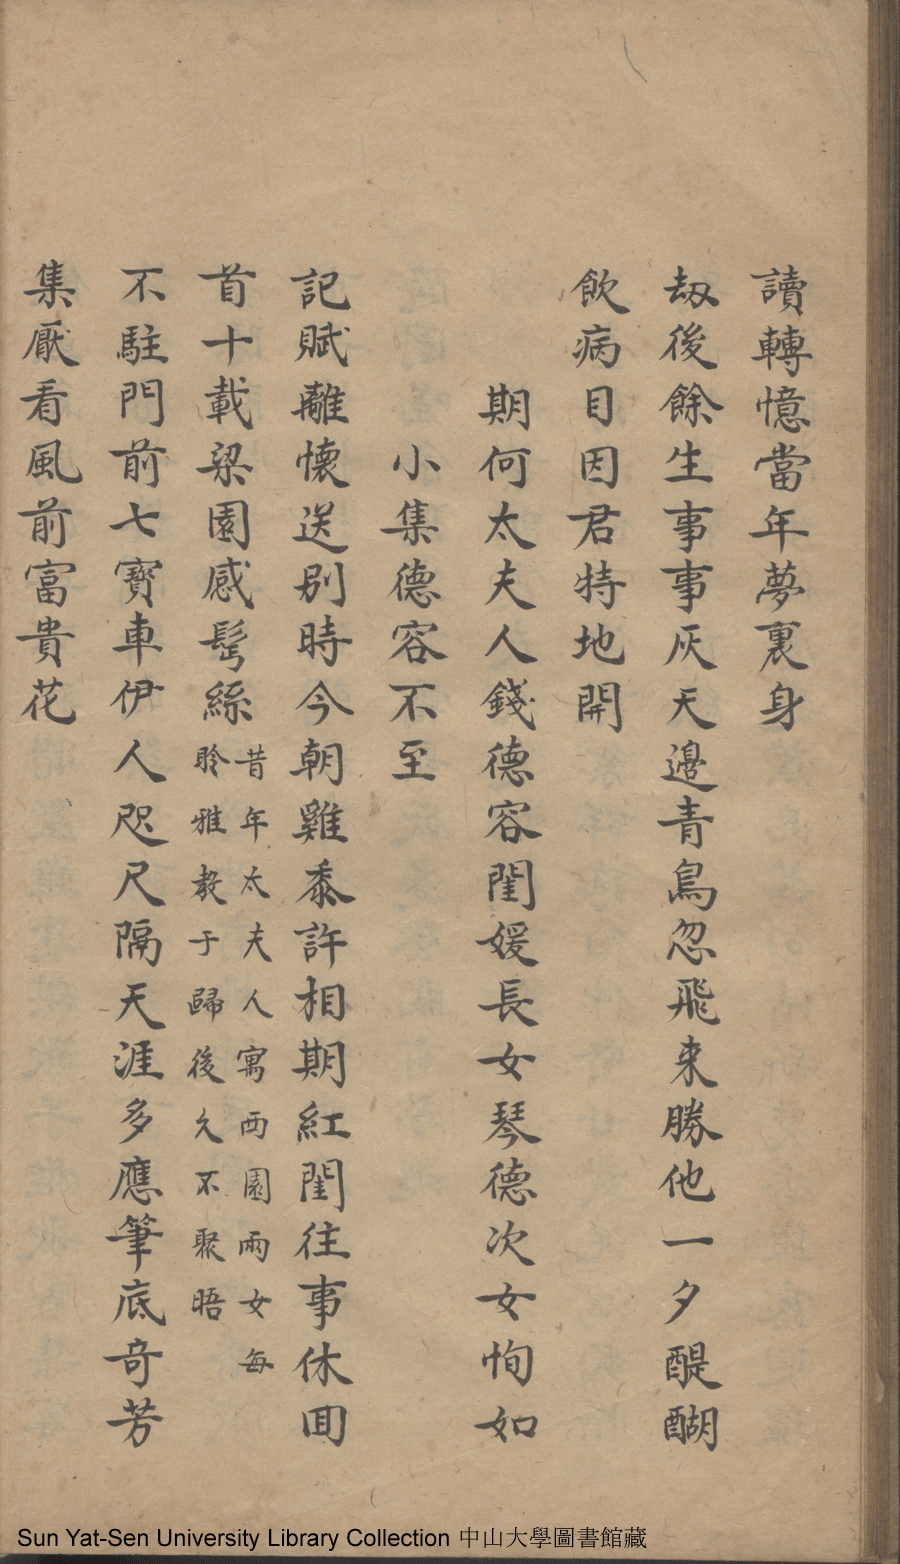 讀轉憶當年夢裏身
刼後餘生事事灰天邊青鳥忽飛来勝他一夕醍醐
飲病目因君特地開
期何太夫人錢德容閨媛長女琴德次女恂如
小集德容不至
記賦離懷送别時今朝雞黍許相期紅閨往事休囬
首十載梁園感髩絲昔年太夫人寓西園兩女每
聆雅教于歸後久不聚晤
不駐門前七寶車伊人咫尺隔天涯多應筆底奇芳
集厭看風前富貴花
Sun Yat-Sen University Library Collection 中山大學圖書館藏